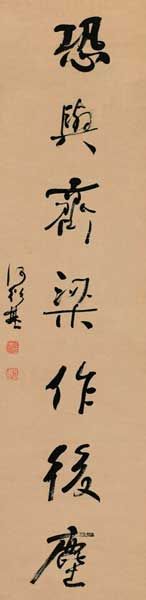 恐與齊梁作後塵
何紹基